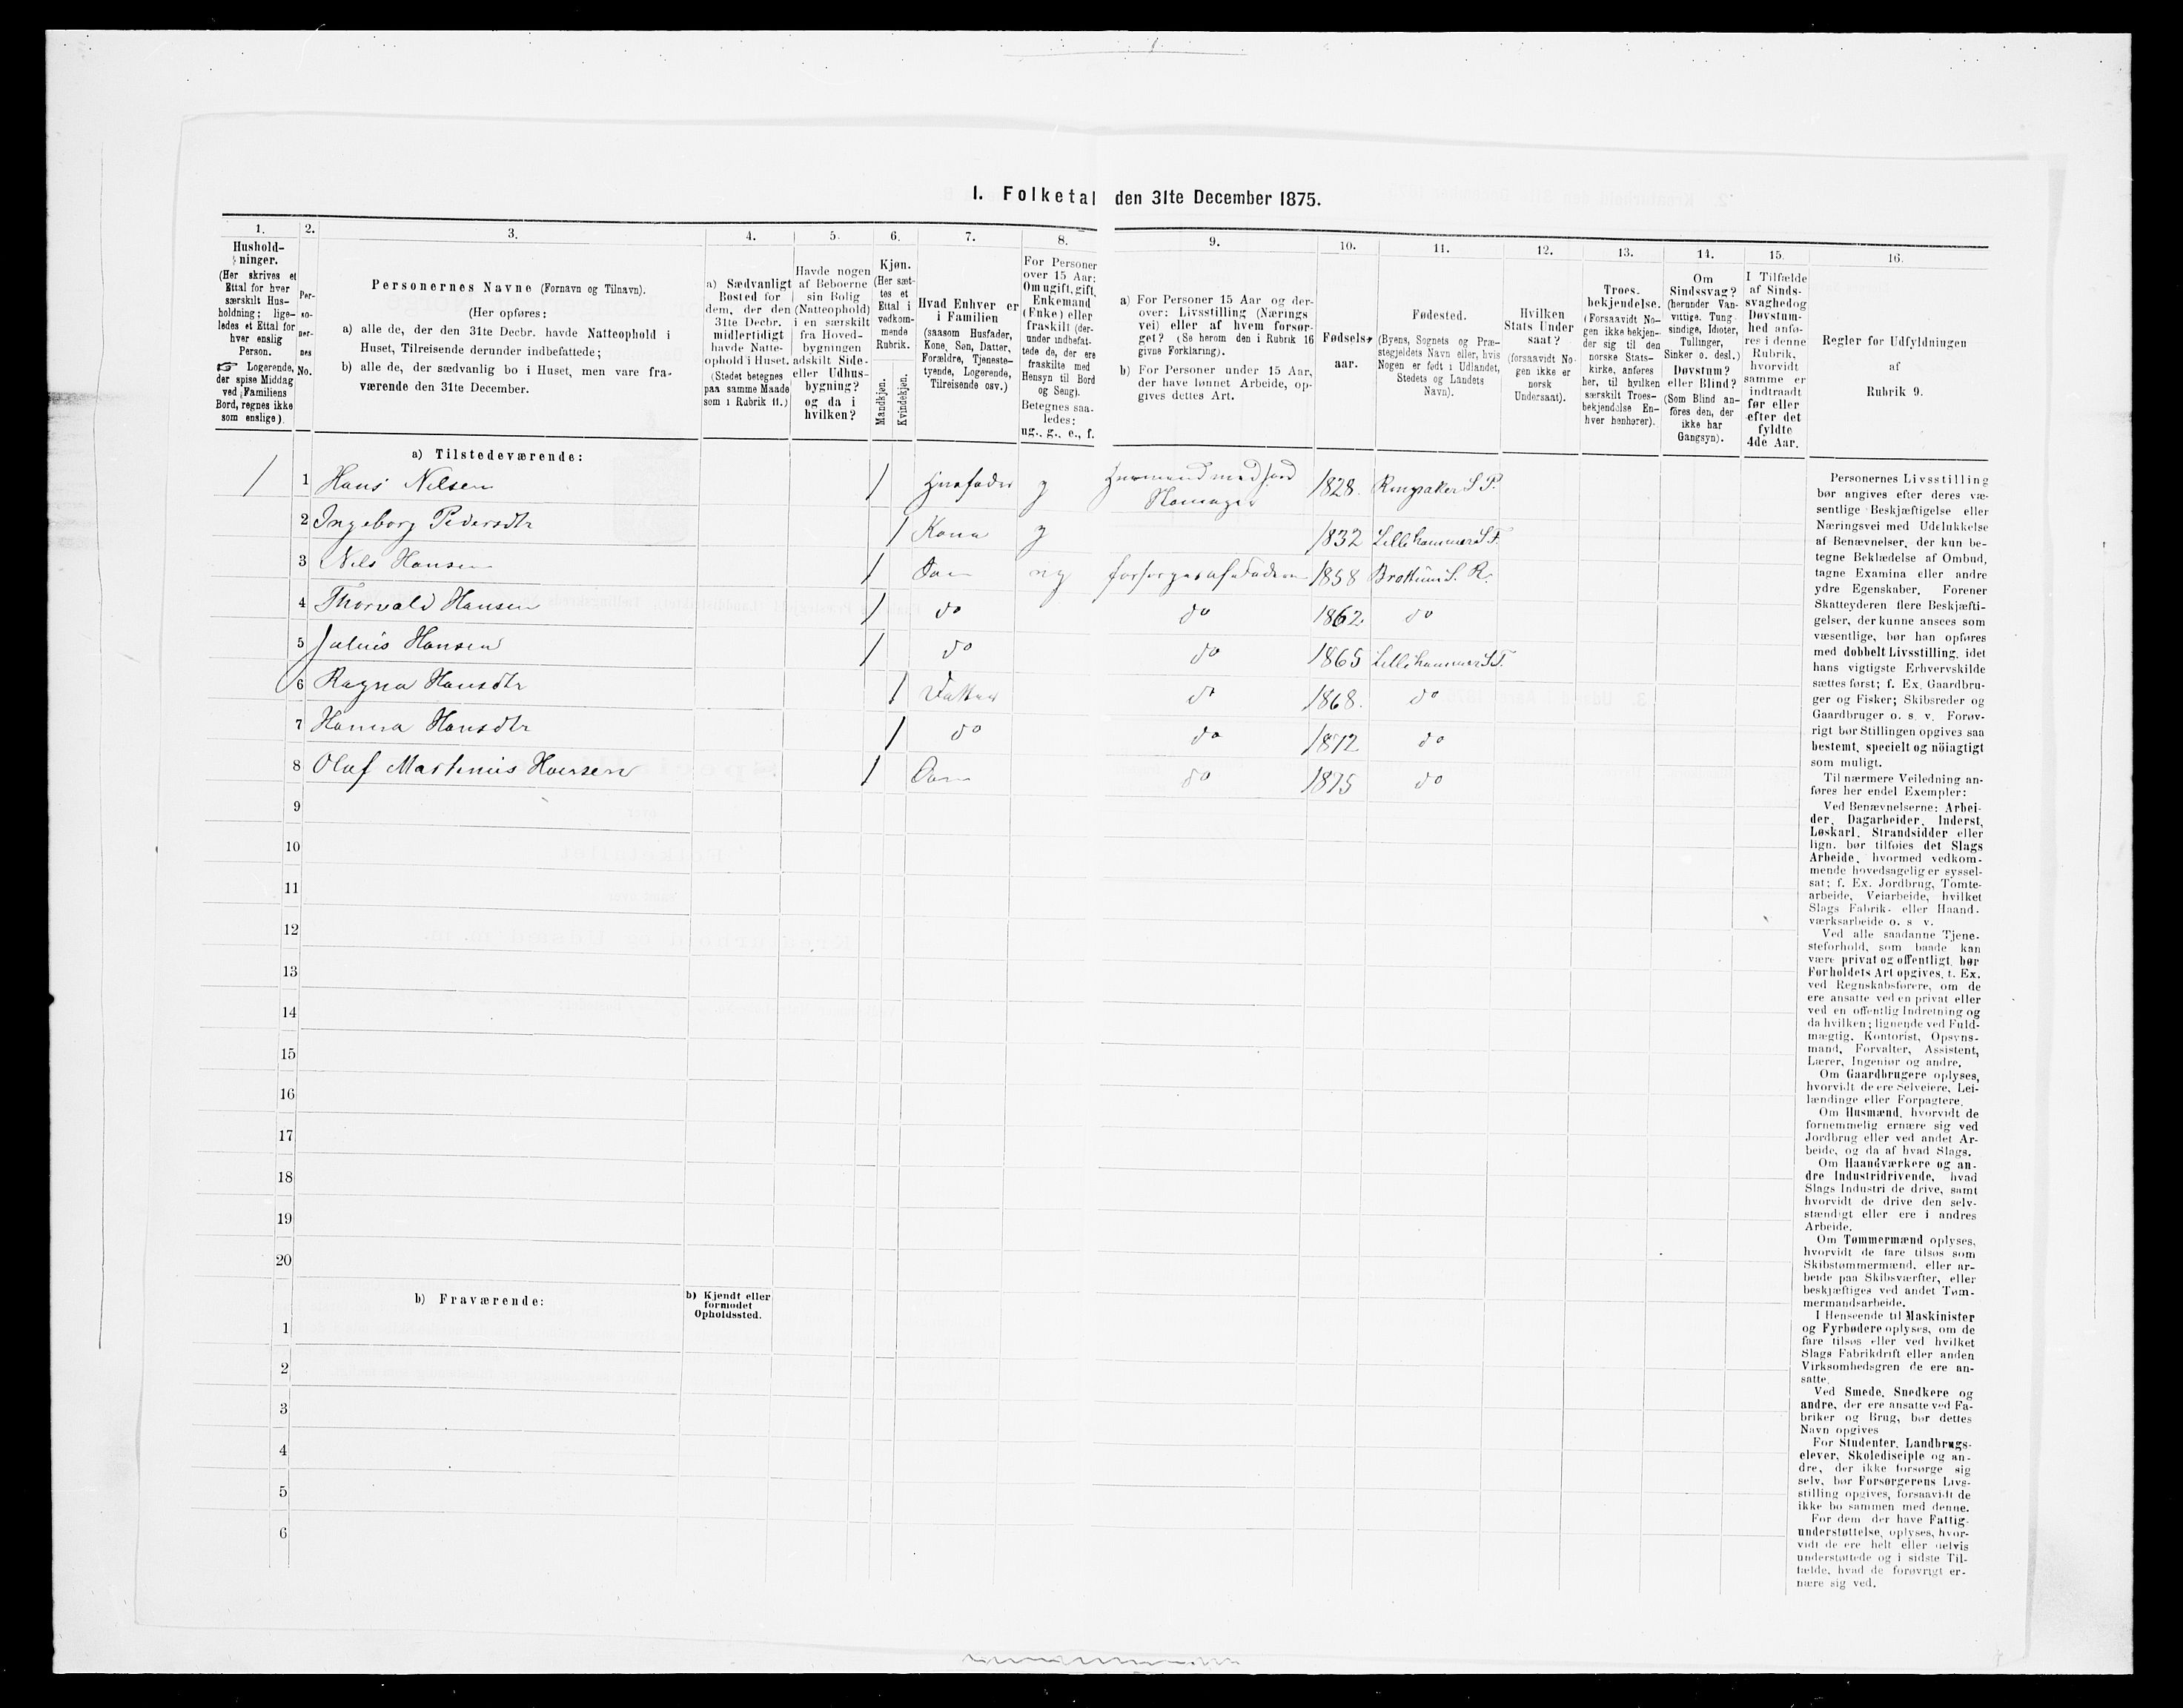 I. Folketal den 31te December 1875.
1.
2.
3.
4.
5.
6.
7.
8.
9.
10.
11.
12.
13.
14.
15.
16.
Hushold-
ninger.
(Her skrives et
Ettal for hver
særskilt Hus-
holdning; lige-
ledes et Ettal for
hver enslig
Person.
☞ Logerende,
der spise Middag
ved Familiens
Bord, regnes ikke
som enslige).
Per-
so-
ner-
nes
No.
Personernes Navne (Fornavn og Tilnavn).
(Her opføres:
a) alle de, der den 31te Decbr. havde Natteophold i
Huset, Tilreisende derunder indbefattede;
b) alle de, der sædvanlig bo i Huset, men vare fra-
værende den 31te December.
a) Sædvanligt
Bosted for
dem, der den
31te Decbr.
midlertidigt
havde Natte-
ophold i Huset.
(Stedet betegnes
paa samme Maade
som i Rubrik 11.)
Havde nogen
af Beboerne
sin Bolig
(Natteophold)
i en særskilt
fra Hoved-
bygningen
adskilt Side-
eller Udhus-
bygning?
og da i
hvilken?
Kjøn.
(Her sæt-
tes et
Ettal i
vedkom-
mende
Rubrik.
Mandkjøn.
Kvindekjøn.
Hvad Enhver er
i Familien
(saasom Husfader,
Kone, Søn, Datter,
Forældre, Tjeneste-
tyende, Logerende,
Tilreisende osv.)
For Personer
over 15 Aar:
Om ugift, gift,
Enkemand
(Enke) eller
fraskilt (der-
under indbefat-
tede de, der ere
fraskilte med
Hensyn til Bord
og Seng).
Betegnes saa-
ledes:
ug., g., e., f.
a) For Personer 15 Aar og der-
over: Livsstilling (Nærings
vei) eller af hvem forsør-
get? (Se herom den i Rubrik 16
givne Forklaring).
b) For Personer under 15 Aar,
der have lønnet Arbeide, op-
gives dettes Art.
Fødsels-
aar.
Fødested.
(Byens, Sognets og Præ-
stegjeldets Navn eller, hvis
Nogen er født i Udlandet,
Stedets og Landets
Navn).
Hvilken
Stats Under
saat?
(forsaavidt No-
gen ikke er
norsk
Undersaat).
Troes-
bekjendelse.
(Forsaavidt No-
gen ikke bekjen-
der sig til den
norske Stats-
kirke, anføres
her, til hvilken
særskilt Troes-
bekjendelse En-
hver henhører).
Om
Sindssvag?
(herunder Van-
vittige, Tung-
sindige, Idioter,
Tullinger,
Sinker o. desl.)
Døvstum?
eller Blind?
(Som Blind an-
føres den, der
ikke har
Gangsyn).
I Tilfælde
af Sinds-
svaghed og
Døvstum-
hed anfø-
res i denne
Rubrik,
hvorvidt
samme er
indtraadt
før eller
efter det
fyldte
4de Aar.
Regler for Udfyldningen
af
Rubrik 9.
a) Tilstedeværende:
1 1 Hans Nilsen 1 Husfader g Husmand med Jord 1828. Ringsaker S. P.
2 Ingeborg Pedersdtr 1 Kone g 1832 Lillehammer
3 Nils Hansen 1 Søn ug forsørges af Faderen 1858
4 Thorvald Hansen 1 do do 1862. do
5 Julius Hansen 1 do do 1865 Lillehammer
6 Ragna Hansdtr 1 Datter do 1868. do
7 Hanna Hansdtr 1 do do 1872 do
8 Olaf Martinius Hansen 1 Søn do 1875 do
9
10
11
12
13
14
15
16
17
18
19
20
b) Fraværende:
b) Kjendt eller
formodet
Opholdssted.
1
2
3
4
5
6
Personernes Livsstilling
bør angives efter deres væ-
sentlige Beskjæftigelse eller
Næringsvei med Udelukkelse
af Benævnelser, der kun be-
tegne Beklædelse af Ombud,
tagne Examina eller andre
ydre Egenskaber. Forener
Skatteyderen flere Beskjæfti-
gelser, der kunne ansees som
væsentlige, bør han opføres
med dobbelt Livsstilling, idet
hans vigtigste Erhvervskilde
sættes først; f. Ex. Gaardbru-
ger og Fisker; Skibsreder og
Gaardbruger o. s. v. Forøv-
rigt bør Stillingen opgives saa
bestemt, specielt og nöiagtigt
som muligt.
Til nærmere Veiledning an-
føres her endel Exempler:
Ved Benævnelserne: Arbei-
der, Dagarbeider, Inderst,
Løskarl, Strandsidder eller
lign. bør tilføies det Slags
Arbeide, hvormed vedkom-
mende hovedsagelig er syssel-
sat; f. Ex. Jordbrug, Tomte-
arbeide, Veiarbeide, hvilket
Slags Fabrik- eller Haand-
værksarbeide o. s. v.
Ved alle saadanne Tjene-
steforhold, som baade kan
være privat og offentligt, bør
Forholdets Art opgives, f. Ex.
ved Regnskabsførere, om de
ere ansatte ved en privat eller
ved en offentlig Indretning og
da hvilken; lignende ved Fuld-
mægtig, Kontorist, Opsyns-
mand, Forvalter, Assistent,
Lærer, Ingeniør og andre.
Om Gaardbrugere oplyses,
hvorvidt de ere Selveiere, Lei-
lændinge eller Forpagtere.
Om Husmænd, hvorvidt de
fornemmelig ernære sig ved
Jordbrug eller ved andet Ar-
beide, og da af hvad Slags.
Om Haandværkere og an-
dre Industridrivende, hvad
Slags Industri de drive, samt
hvorvidt de drive den selv-
stændigt eller ere i andres
Arbeide.
Om Tømmermænd oplyses,
hvorvidt de fare tilsøs som
Skibstømmermænd, eller ar-
beide paa Skibsværfter, eller
beskjæftiges ved andet Tøm-
mermandsarbeide.
I Henseende til Maskinister
og Fyrbødere oplyses, om de
fare tilsøs eller ved hvilket
Slags Fabrikdrift eller anden
Virksomhedsgren de ere an-
satte.
Ved Smede, Snedkere og
andre, der ere ansatte ved Fa-
briker og Brug, bør dettes
Navn opgives
For Studenter, Landbrugs-
elever, Skoledisciple og an-
dre, der ikke forsørge sig
selv, bør Forsørgerens Livs-
stilling opgives, forsaavidt de
ikke bo sammen med denne.
For dem der have Fattig-
understøttelse, oplyses, hvor-
vidt de ere helt eller delvis
understøttede og i sidste Til-
fælde, hvad de forøvrigt er-
nære sig ved.